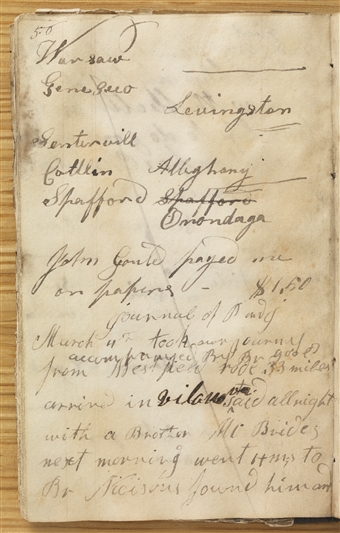 50
Warsaw
Geneseo
Levingston
Sentervill
Catlin Alleghany
Spafford Spafford
Onondaga
John Gould payed me
on papers - $1.50
Journal of
March took our journey
accompanyed By Br Gould
from Westfield rode 33 miles
arrived in vilanova staid all night
with a Brother Mc Brides
next morning went 4 ms to
Br Nicisons found him an